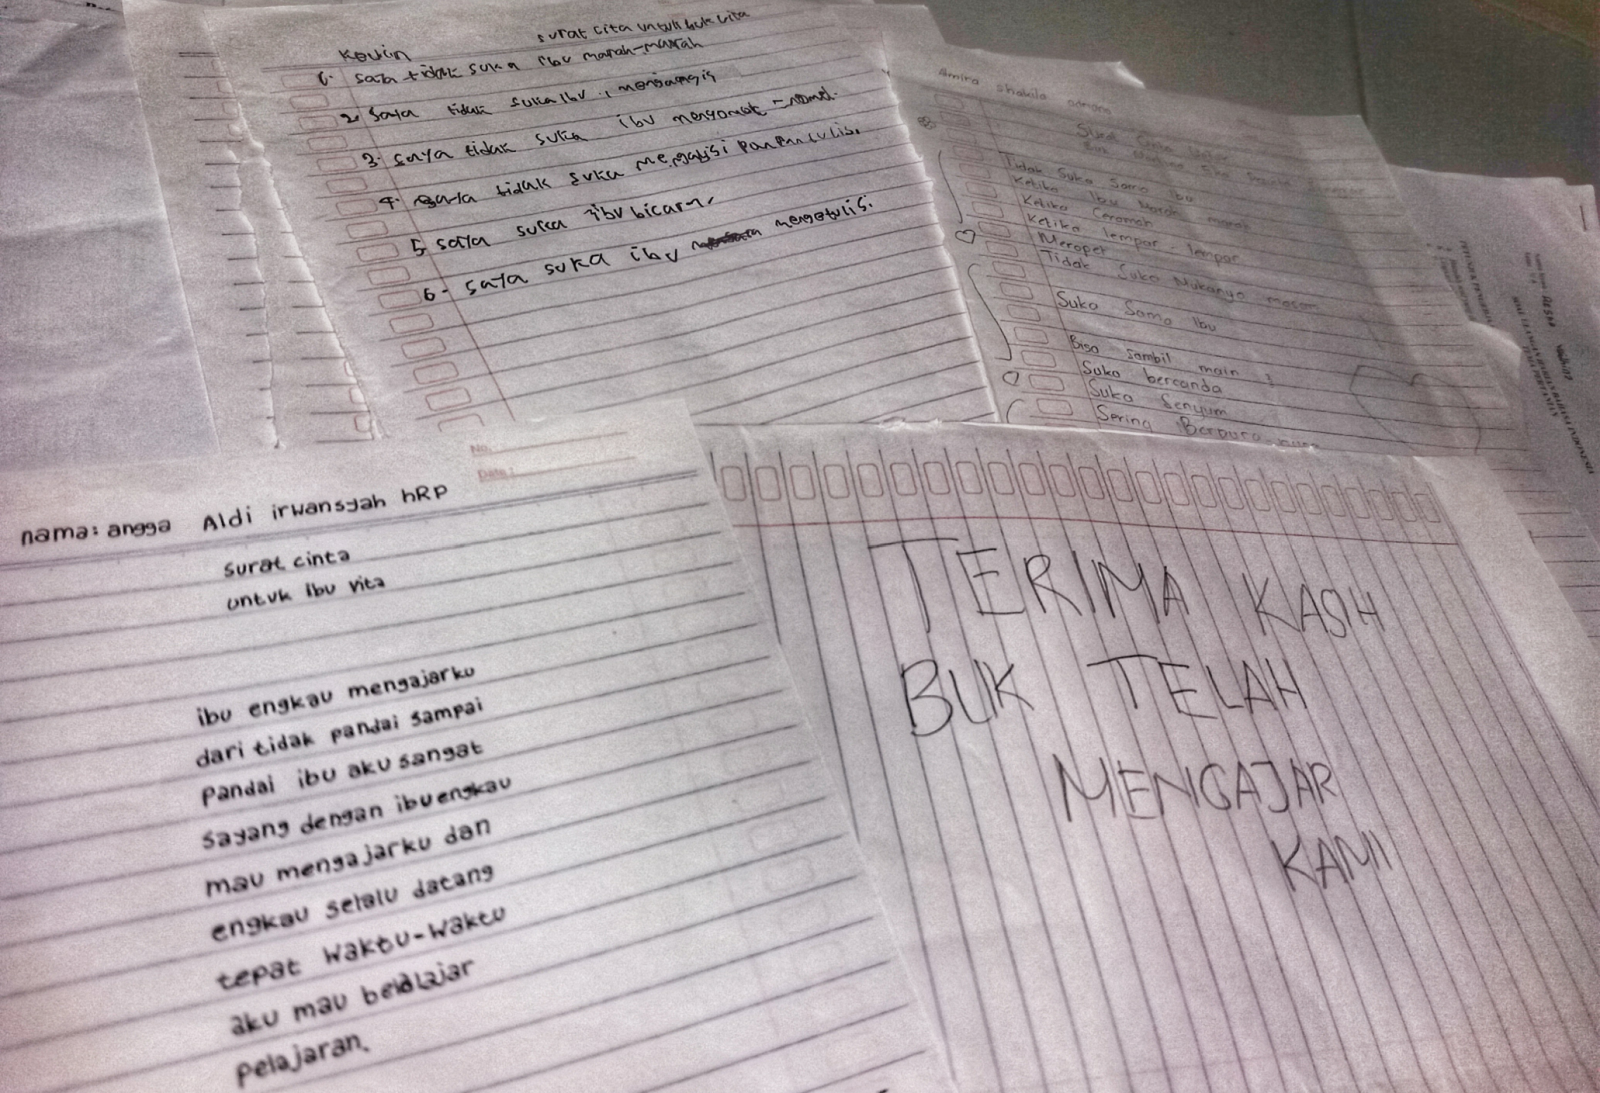 Kevin
surat cita untuk buk vita
1. saya tidak suka ibu marah-marah
2. saya tidak suka ibu
3. saya tidak suka ibu mengomel-ngomel.
4. saya tidak suka mengapisi papan tulis.
5. saya suka ibu bicara
6. saya suka ibu mengetulis.
Amira Shakila
Tidak Suka Sama Ibu
Ketika Ibu Marah marah
Ketika Ceramah
Ketika lempar lempar
Merepet
Tidak Suka Mukanya masam
Suka Sama Ibu
Bisa sambil main
Suka bercanda
Suka Senyum
Sering Berpura
No.
Date:
nama: angga Aldi irwansyah hRP
surat cinta
untuk ibu vita
ibu engkau mengajarku
dari tidak pandai sampai
pandai ibu aku sangat
sayang dengan ibu engkau
mau mengajarku dan
engkau selalu datang
tepat waktu-waktu
aku mau belalajar
pelajaran.
TERIMA KASIH
BUK TELAH
MENGAJAR
KAMI